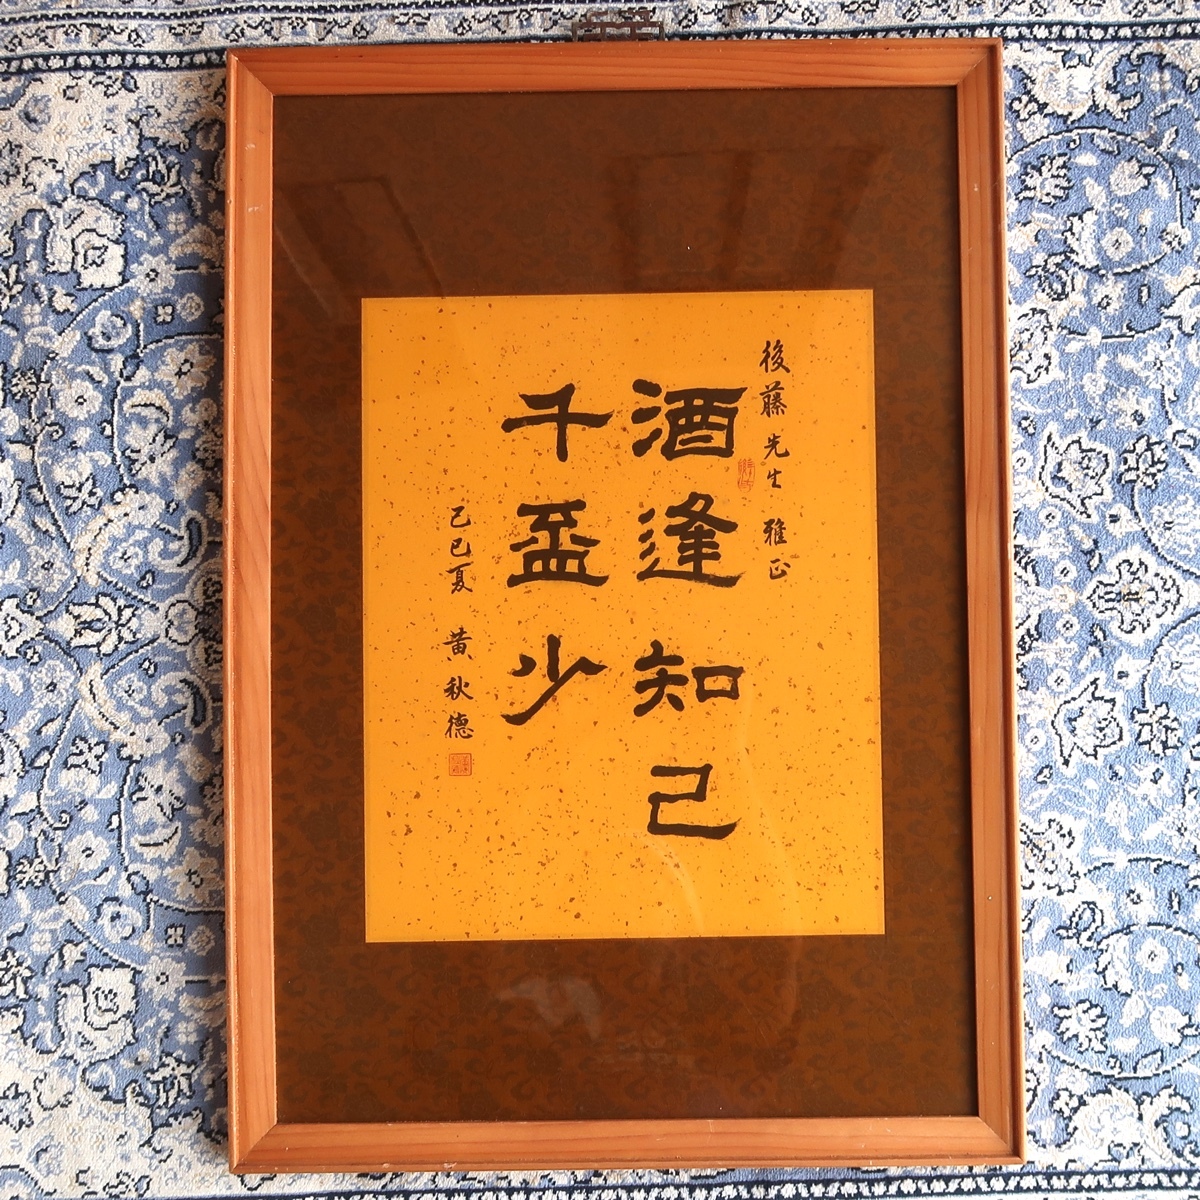 後藤先生 雅正
酒逢知己
千盃少
己巳夏 黄秋德